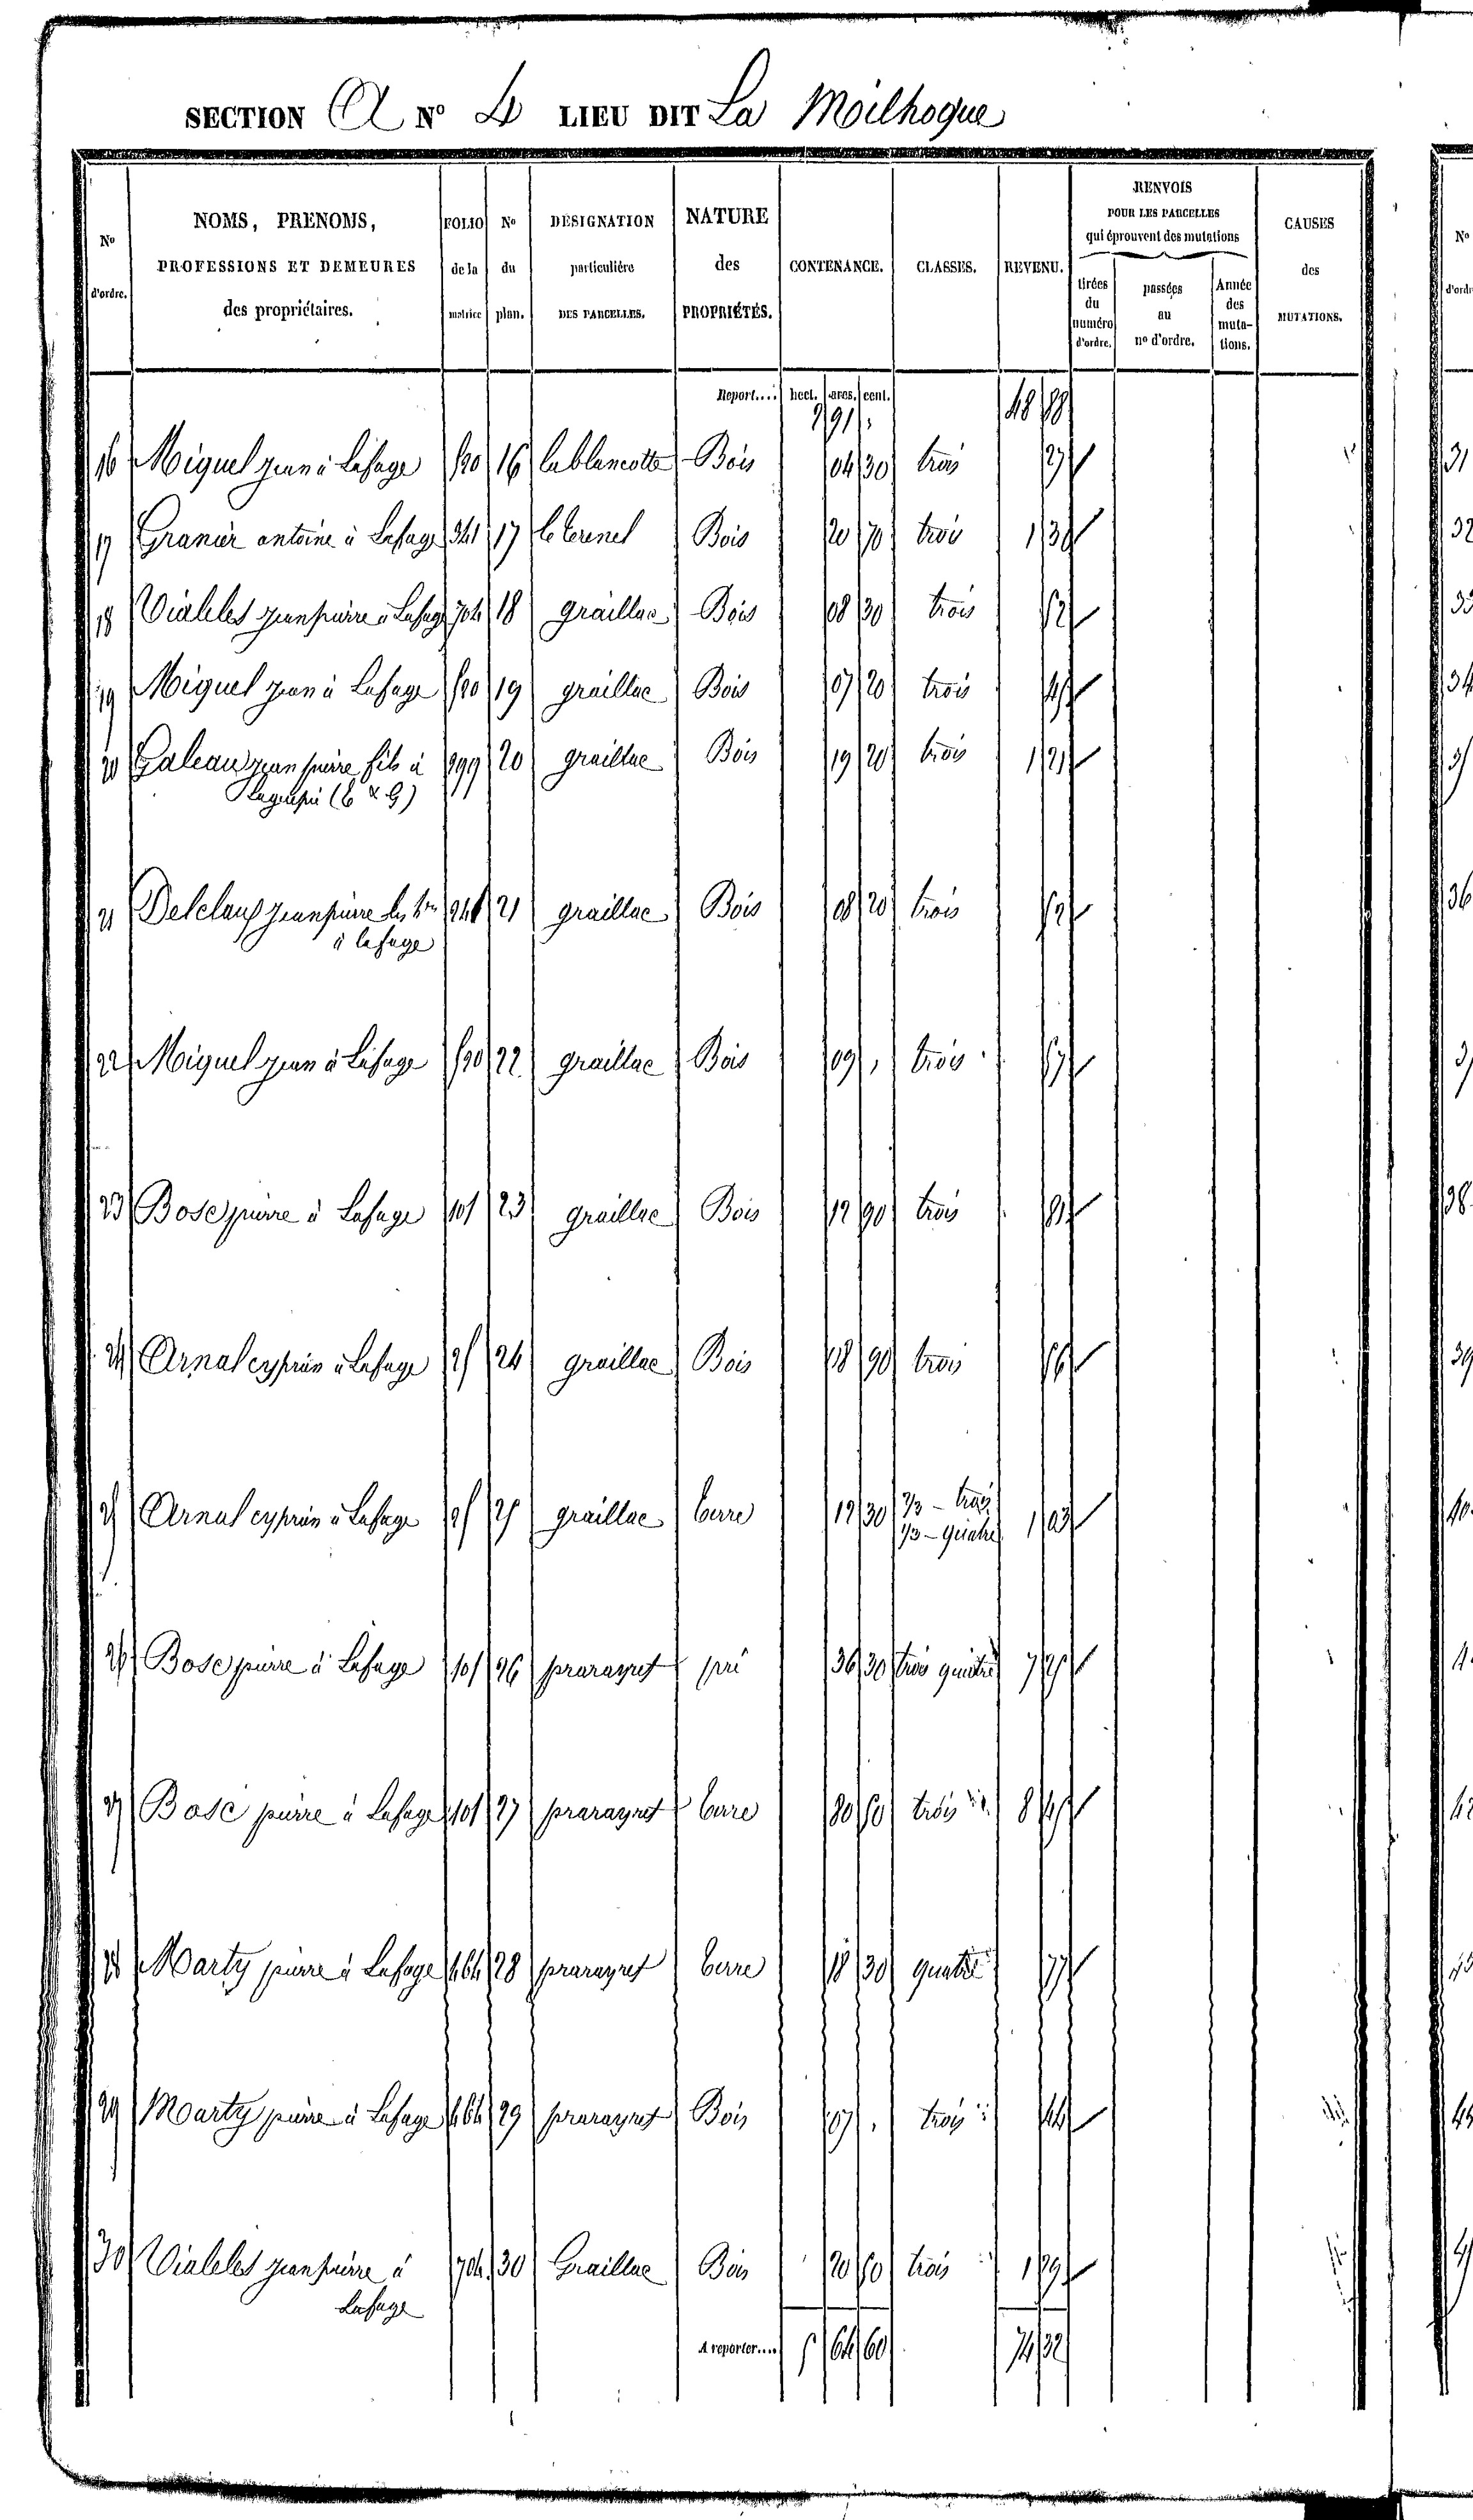 SECTION A N° 4 LIEU DIT La Moilhoque
N° d'ordre.
NOMS, PRENOMS, PROFESSIONS ET DEMEURES des propriétaires.
FOLIO de la matrice
N° du plan.
DÉSIGNATION particulière DES PARCELLES.
NATURE des PROPRIÉTÉS.
CONTENANCE.
CLASSES.
REVENU.
RENVOIS POUR LES PARCELLES qui éprouvent des mutations
tirées du numéro d'ordre.
passées au n° d'ordre.
Année des mutations.
CAUSES des MUTATIONS.
Report.... hect. ares. cent.
16 Miguel jean à Lafage 520 16 Bois 04 30 trois 27
17 Granier antoine à Lafage 341 17 Bois 20 70 trois 1 30
18 Vialeles jean pierre à Lafage 704 18 graillac Bois 08 30 trois 52
19 Miguel jean à Lafage 520 19 graillac Bois 07 20 trois 45
20 Galeau jean pierre fils à 299 20 graillac Bois 19 20 trois 1 21
Laguépie (T & G)
21 Delclaux jean pierre 21 graillac Bois 08 20 trois 52
à lafage
22 Miguel jean à Lafage 520 22 graillac Bois 09 , trois 57
23 Bosc pierre à Lafage 101 23 graillac Bois 12 90 trois 81
24 Arnal cyprien à Lafage 25 24 graillac Bois 90 trois 56
25 Arnal cyprien à Lafage 25 25 graillac terre 12 30 2/3 - trois 1 03
1/3 - quatre
26 Bosc pierre à Lafage 101 26 prarayret pré 36 30 trois quatre 7 25
27 Bosc pierre à Lafage 101 27 prarayret terre 80 50 trois 8 45
28 Marty pierre à Lafage 464 28 prarayret terre 18 30 quatre 77
29 Marty pierre à Lafage 464 29 prarayret Bois 07 , trois 44
30 Vialeles jean pierre à 704 30 Graillac Bois 20 50 trois 1 29
Lafage
A reporter.... 5 64 60 74 32